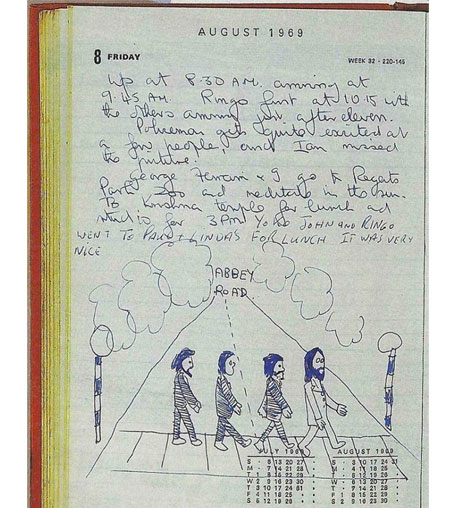 AUGUST 1969
8 FRIDAY
WEEK 32 · 220-145
Up at 8.30 AM. arriving at
9.45 AM. Ringo first at 10.15 with
the others arriving just after eleven.
Policeman gets quite excited at
a few people, and Ian missed
the picture!
George & I go to Regents
Park Zoo and meditate in the sun.
To Krishna temple for lunch and
studio for 3PM JOHN AND RINGO
WENT TO PAUL + LINDAS FOR LUNCH IT WAS VERY
NICE
ABBEY
ROAD.
JULY 1969 AUGUST 1969
S · 6 13 20 27 S · 3 10 17 24 31
M · 7 14 21 28 M · 4 11 18 25
T 1 8 15 22 29 T · 5 12 19 26
W 2 9 16 23 30 W · 6 13 20 27
T 3 10 17 24 31 T · 7 14 21 28
F 4 11 18 25 F 1 8 15 22 29
S 5 12 19 26 S 2 9 16 23 30